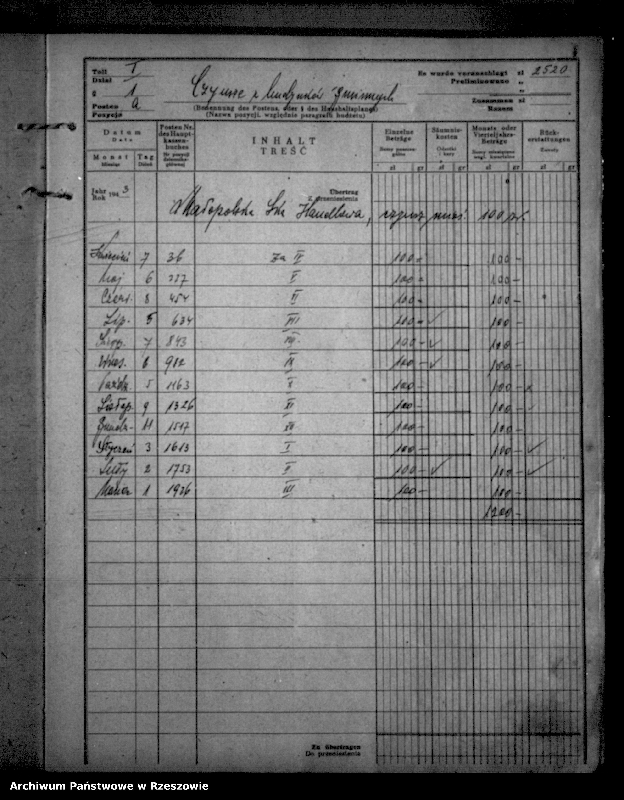 Teil I
Dział
§ 1
Posten a
Pozycja
Czynsze z budynków gminnych
(Benennung des Postens, oder § des Haushaltsplanes)
(Nazwa pozycji, względnie paragrafu budżetu)
Es wurde veranschlagt zł 2520
Preliminowano „
„
Zusammen zł
Razem
Datum
Data
Monat Tag
Miesiąc Dzień
Posten Nr. des Hauptkassenbuches
Nr pozycji dziennika-głównej
INHALT
TREŚĆ
Einzelne Beträge
Sumy poszczególne
zł gr
Säumniskosten
Odsetki i kary
zł gr
Monats oder Vierteljahrs-Beträge
Sumy miesięczne wzgl. kwartalne
zł gr
Rückerstattungen
Zwroty
zł gr
Jahr
Rok 194 3
Übertrag
Z przeniesienia
Małopolska Ska Handlowa, czynsz mies. 100 zł.
Kwiecień 7 36 za IV 100 - 100 -
Maj 6 237 V 100 - 100 -
Czerw. 8 454 VI 100 - 100 -
Lip. 5 634 VII 100 - ✓ 100 -
Sierp. 7 843 VIII 100 - ✓ 100 -
Wrześ. 6 982 IX 100 - ✓ 100 -
Paźdz. 5 1163 X 100 - 100 -
Listop. 9 1326 XI 100 - 100 -
Grudz. 11 1517 XII 100 - 100 -
Styczeń 3 1613 I 100 - 100 - ✓
Luty 2 1753 II 100 - ✓ 100 - ✓
Marzec 1 1926 III 100 - 100 -
1200 -
Zu übertragen
Do przeniesienia
Archiwum Państwowe w Rzeszowie